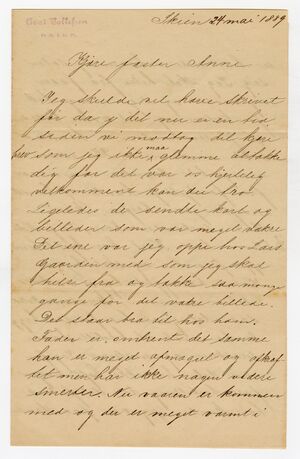 Skien 24 mai 1889
Kjære faster Anne
Jeg skulde vel have skrivet
for da y det nu er en tid
siden vi modtog det kjære
brev som jeg ikke maa glemme at takke
dig for det var os hjertelig
velkomment kan du tro
Ligeledes de sendte kort og
billeder som var meget vakre
Det ene var jeg oppe hos Lars
Gaarden med som jeg skal
hilse fra og takke saa mange
gange for det vakre billede.
Det staar bra til hos ham.
Fader er omtrent det samme
han er meget afmagret og afkræf
tet men har ikke nogen videre
smerter. Nu vaaren er kommen
med og der er meget varmt i